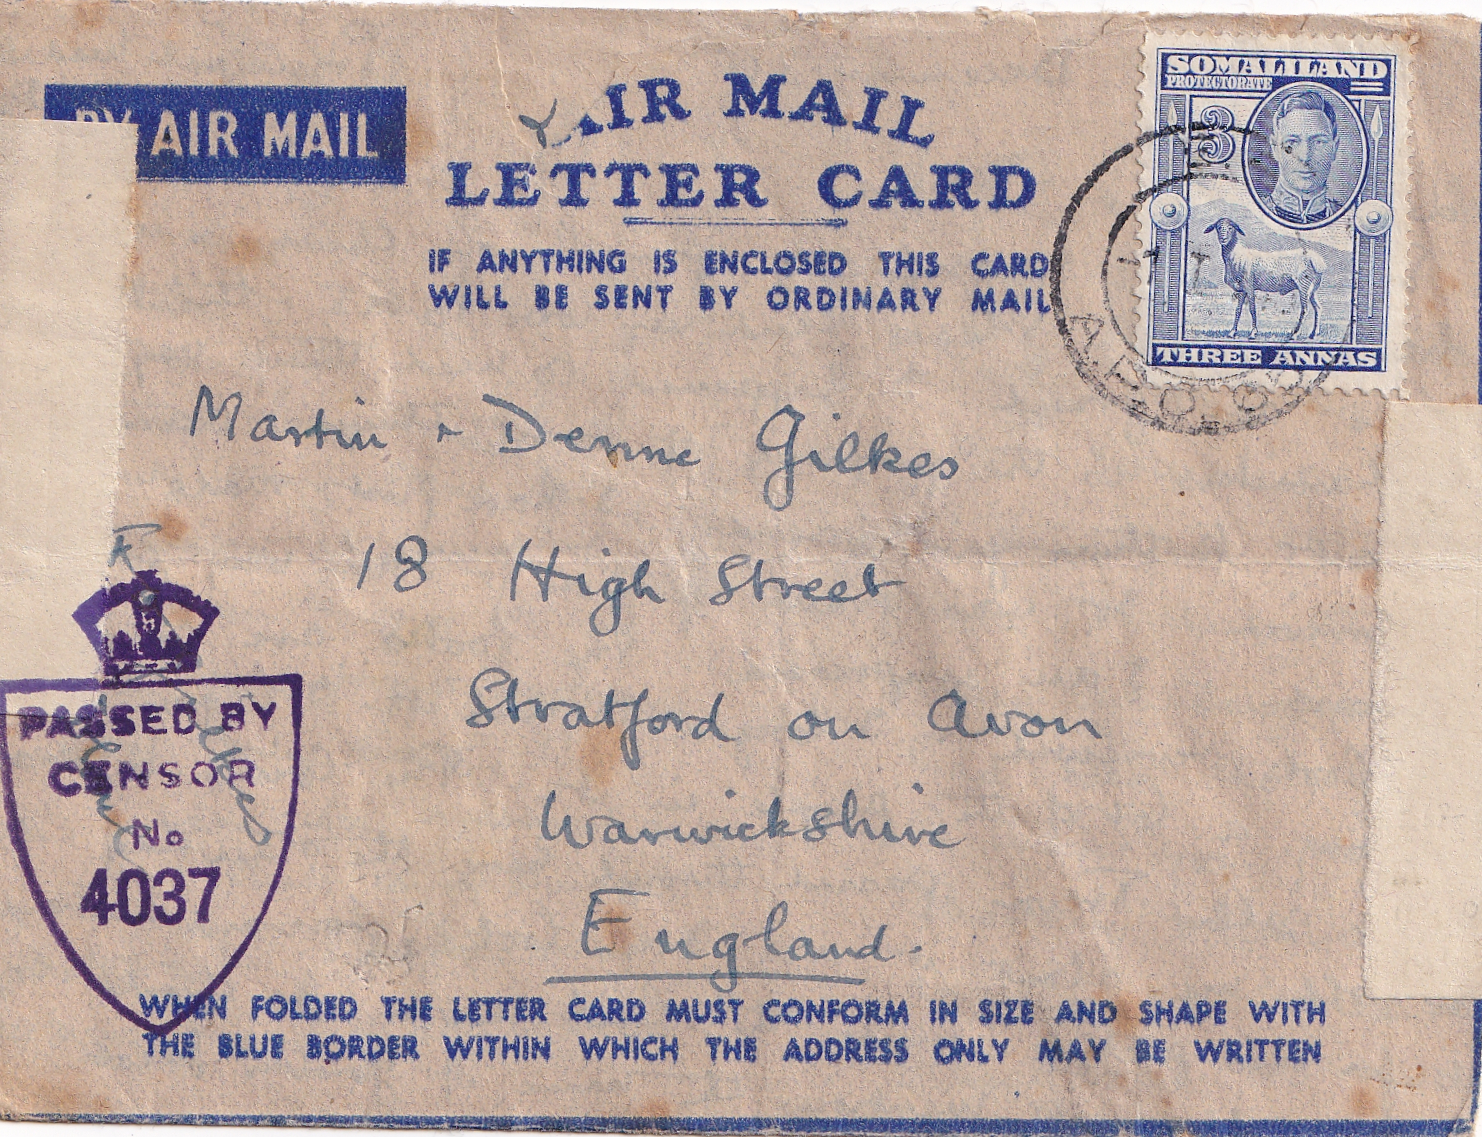 BY AIR MAIL
AIR MAIL
LETTER CARD
IF ANYTHING IS ENCLOSED THIS CARD
WILL BE SENT BY ORDINARY MAIL
SOMALILAND
PROTECTORATE
3
THREE ANNAS
A.P.O.
Martin + Denne Gilkes
18 High Street
Stratford on Avon
Warwickshire
England.
PASSED BY
CENSOR
No
4037
WHEN FOLDED THE LETTER CARD MUST CONFORM IN SIZE AND SHAPE WITH
THE BLUE BORDER WITHIN WHICH THE ADDRESS ONLY MAY BE WRITTEN